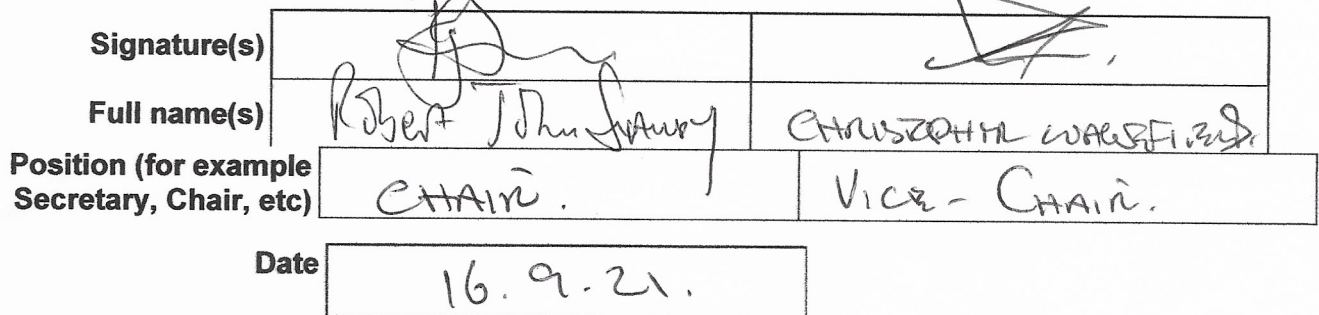 Signature(s)
Full name(s) Robert John CHRISTOPHER WAKEFIELD.
Position (for example
Secretary, Chair, etc) CHAIR. VICE - CHAIR.
Date 16.9.21.